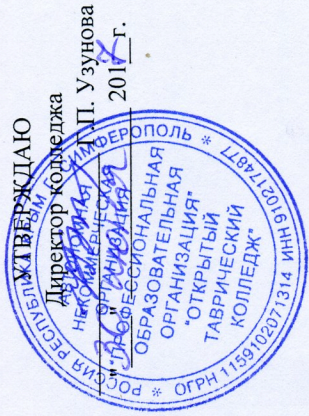 УТВЕРЖДАЮ
Директор колледжа
Г.П. Узунова
2017 г.
РОССИЯ РЕСПУБЛИКА КРЫМ Г. СИМФЕРОПОЛЬ *
ОГРН 1159102071314 ИНН 9102174877 *
НЕКОММЕРЧЕСКАЯ
ОРГАНИЗАЦИЯ
"ПРОФЕССИОНАЛЬНАЯ
ОБРАЗОВАТЕЛЬНАЯ
ОРГАНИЗАЦИЯ"
"ОТКРЫТЫЙ
ТАВРИЧЕСКИЙ
КОЛЛЕДЖ"